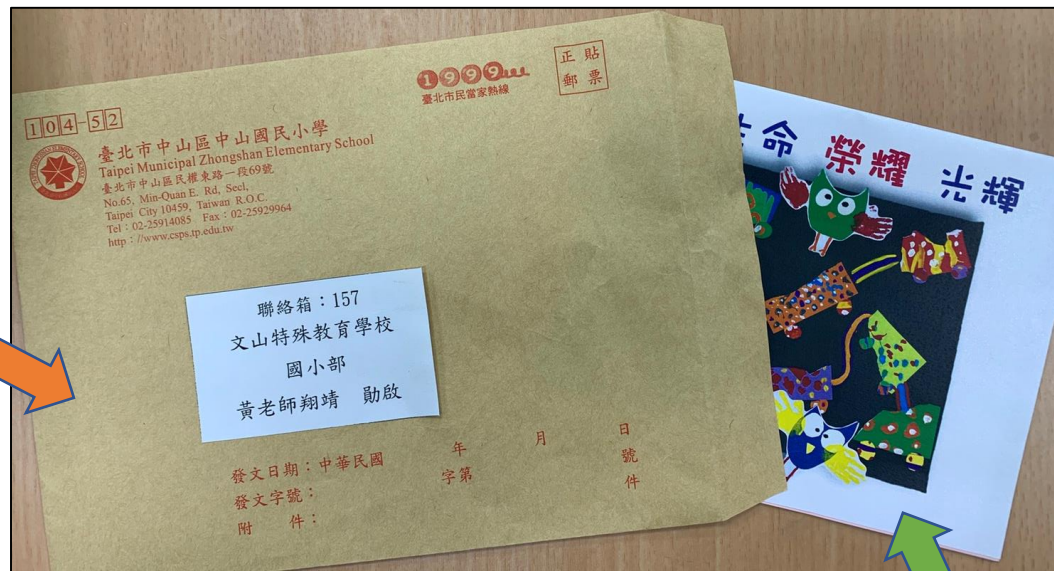 104-52
臺北市中山區中山國民小學
Taipei Municipal Zhongshan Elementary School
臺北市中山區民權東路一段69號
No.65, Min-Quan E. Rd, Sec1,
Taipei City 10459, Taiwan R.O.C.
Tel：02-25914085 Fax：02-25929964
http：//www.csps.tp.edu.tw
1999
臺北市民當家熱線
正貼
郵票
聯絡箱：157
文山特殊教育學校
國小部
黃老師翔靖 勛啟
發文日期：中華民國 年 月 日
發文字號： 字第 號
附 件： 件
命 榮耀 光輝